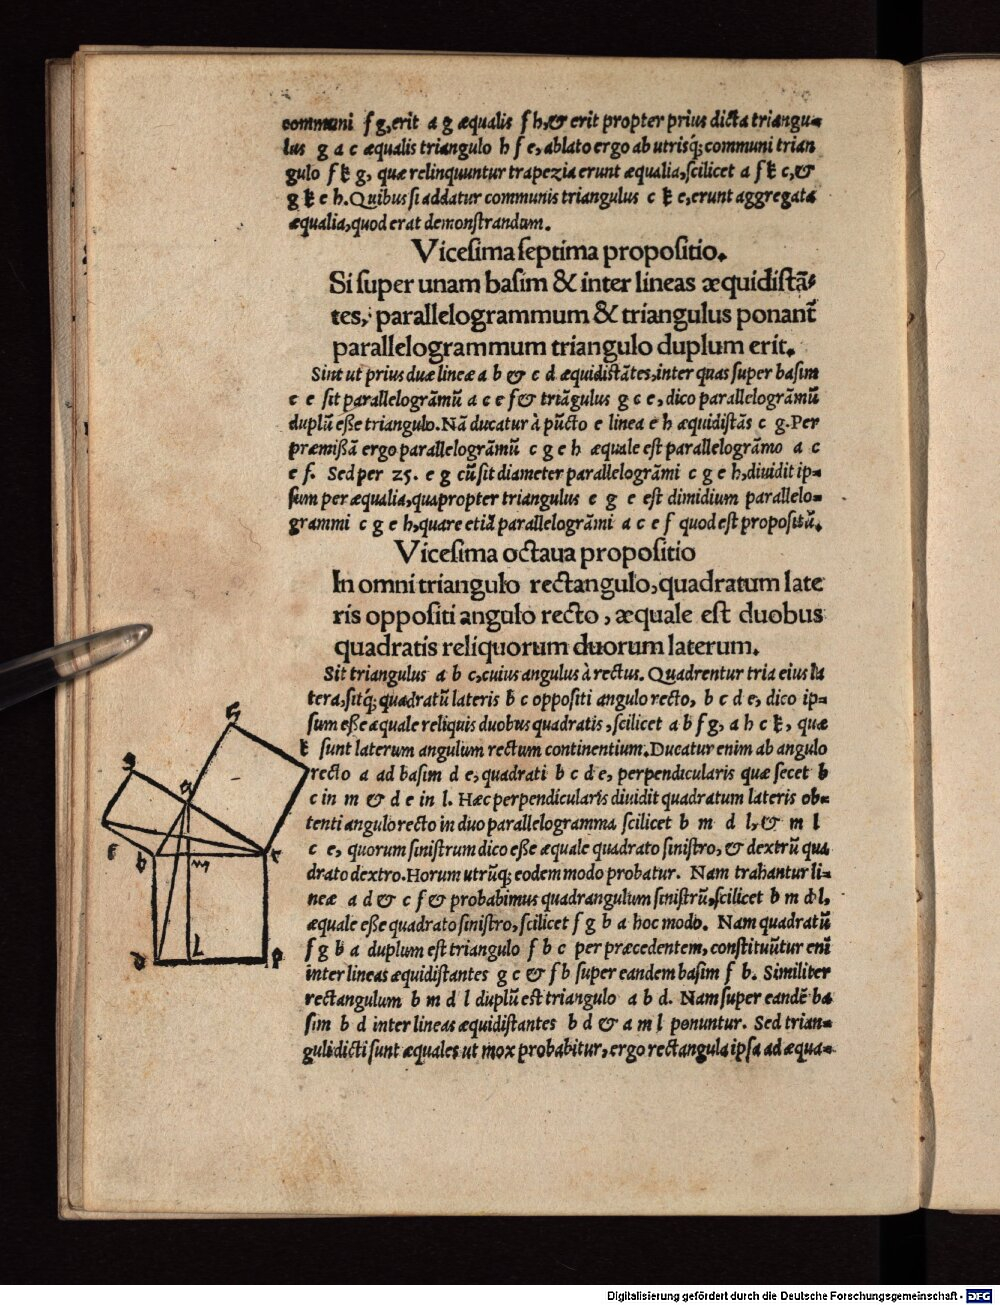 communi f g, erit a g æqualis f h, & erit propter prius dicta triangu-
lus g a c æqualis triangulo h f e, ablato ergo ab utrisq́; communi trian
gulo f k g, quæ relinquuntur trapezia erunt æqualia, scilicet a f k c, &
g k e h. Quibus si addatur communis triangulus c k e, erunt aggregata
æqualia, quod erat demonstrandum.
Vicesima septima propositio.
Si super unam basim & inter lineas æquidistã-
tes, parallelogrammum & triangulus ponant̃
parallelogrammum triangulo duplum erit.
Sint ut prius duæ lineæ a b & c d æquidistãtes, inter quas super basim
c e sit parallelogrãmũ a c e f & triãgulus g c e, dico parallelogrãmũ
duplũ esse triangulo. Nã ducatur à pũcto e linea e h æquidistãs c g. Per
præmissã ergo parallelogrãmũ c g e h æquale est parallelogrãmo a c
e f. Sed per 25. e g cũ sit diameter parallelogrãmi c g e h, diuidit ip-
sum per æqualia, quapropter triangulus e g e est dimidium parallelo-
grammi c g e h, quare etiã parallelogrãmi a c e f quod est propositũ.
Vicesima octaua propositio
In omni triangulo rectangulo, quadratum late
ris oppositi angulo recto, æquale est duobus
quadratis reliquorum duorum laterum.
Sit triangulus a b c, cuius angulus à rectus. Quadrentur tria eius la
tera, sitq́; quadratũ lateris b c oppositi angulo recto, b c d e, dico ip-
sum esse æquale reliquis duobus quadratis, scilicet a b f g, a h c k, quæ
sunt laterum angulum rectum continentium. Ducatur enim ab angulo
recto a ad basim d e, quadrati b c d e, perpendicularis quæ secet b
c in m & d e in l. Hæc perpendicularis diuidit quadratum lateris ob-
tenti angulo recto in duo parallelogramma scilicet b m d l, & m l
c e, quorum sinistrum dico esse æquale quadrato sinistro, & dextrũ qua
drato dextro. Horum utrũq; eodem modo probatur. Nam trahantur li-
neæ a d & c f & probabimus quadrangulum sinistrũ, scilicet b m d l,
æquale esse quadrato sinistro, scilicet f g b a hoc modo. Nam quadratũ
f g b a duplum est triangulo f b c per præcedentem, constituũtur enĩ
inter lineas æquidistantes g c & f b super eandem basim f b. Similiter
rectangulum b m d l duplũ est triangulo a b d. Nam super eandẽ ba
sim b d inter lineas æquidistantes b d & a m l ponuntur. Sed trian-
guli dicti sunt æquales ut mox probabitur, ergo rectangula ipsa ad æqua-
h
k
g
a
f
b
m
c
d
L
e
Digitalisierung gefördert durch die Deutsche Forschungsgemeinschaft - DFG